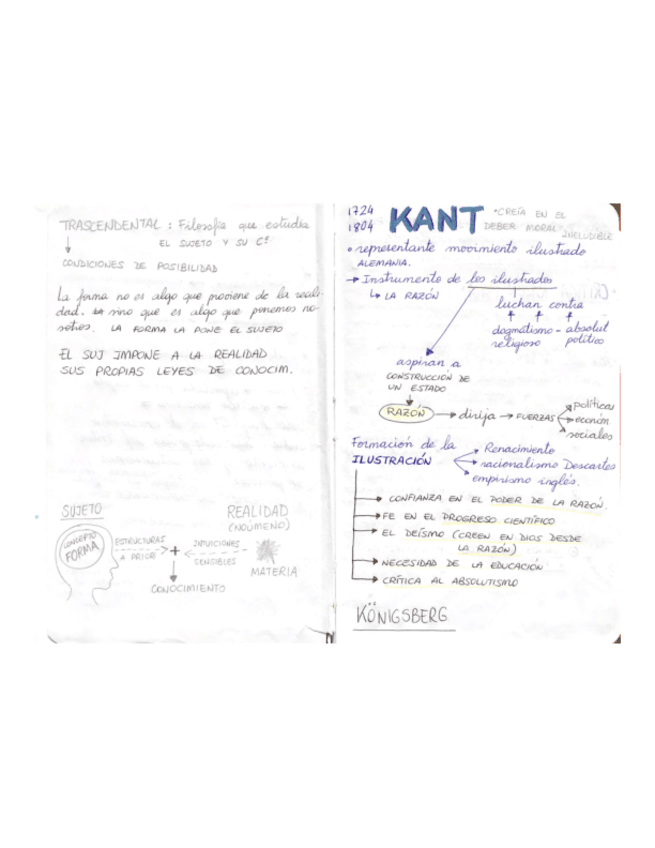 TRASCENDENTAL : Filosofía que estudia
EL SUJETO Y SU Cº
CONDICIONES DE POSIBILIDAD
La forma no es algo que proviene de la reali-
dad. sino que es algo que ponemos no-
sotros. LA FORMA LA PONE EL SUJETO
EL SUJ IMPONE A LA REALIDAD
SUS PROPIAS LEYES DE CONOCIM.
SUJETO
REALIDAD
(NOÚMENO)
CONCEPTO
FORMA
ESTRUCTURAS
A PRIORI
+
INTUICIONES
SENSIBLES
MATERIA
CONOCIMIENTO
1724
1804
KANT
•CREÍA EN EL
DEBER MORAL
INELUDIBLE
• representante movimiento ilustrado
ALEMANIA.
→ Instrumento de los ilustrados
↳ LA RAZÓN
luchan contra
dogmatismo - absolut
religioso político
aspiran a
CONSTRUCCIÓN DE
UN ESTADO
RAZÓN → dirija → FUERZAS
políticas
económ
sociales
Formación de la
ILUSTRACIÓN
Renacimiento
racionalismo Descartes
empirismo inglés.
→ CONFIANZA EN EL PODER DE LA RAZÓN.
→ FE EN EL PROGRESO CIENTÍFICO
→ EL DEÍSMO (CREEN EN DIOS DESDE
LA RAZÓN)
→ NECESIDAD DE LA EDUCACIÓN
→ CRÍTICA AL ABSOLUTISMO
KÖNIGSBERG